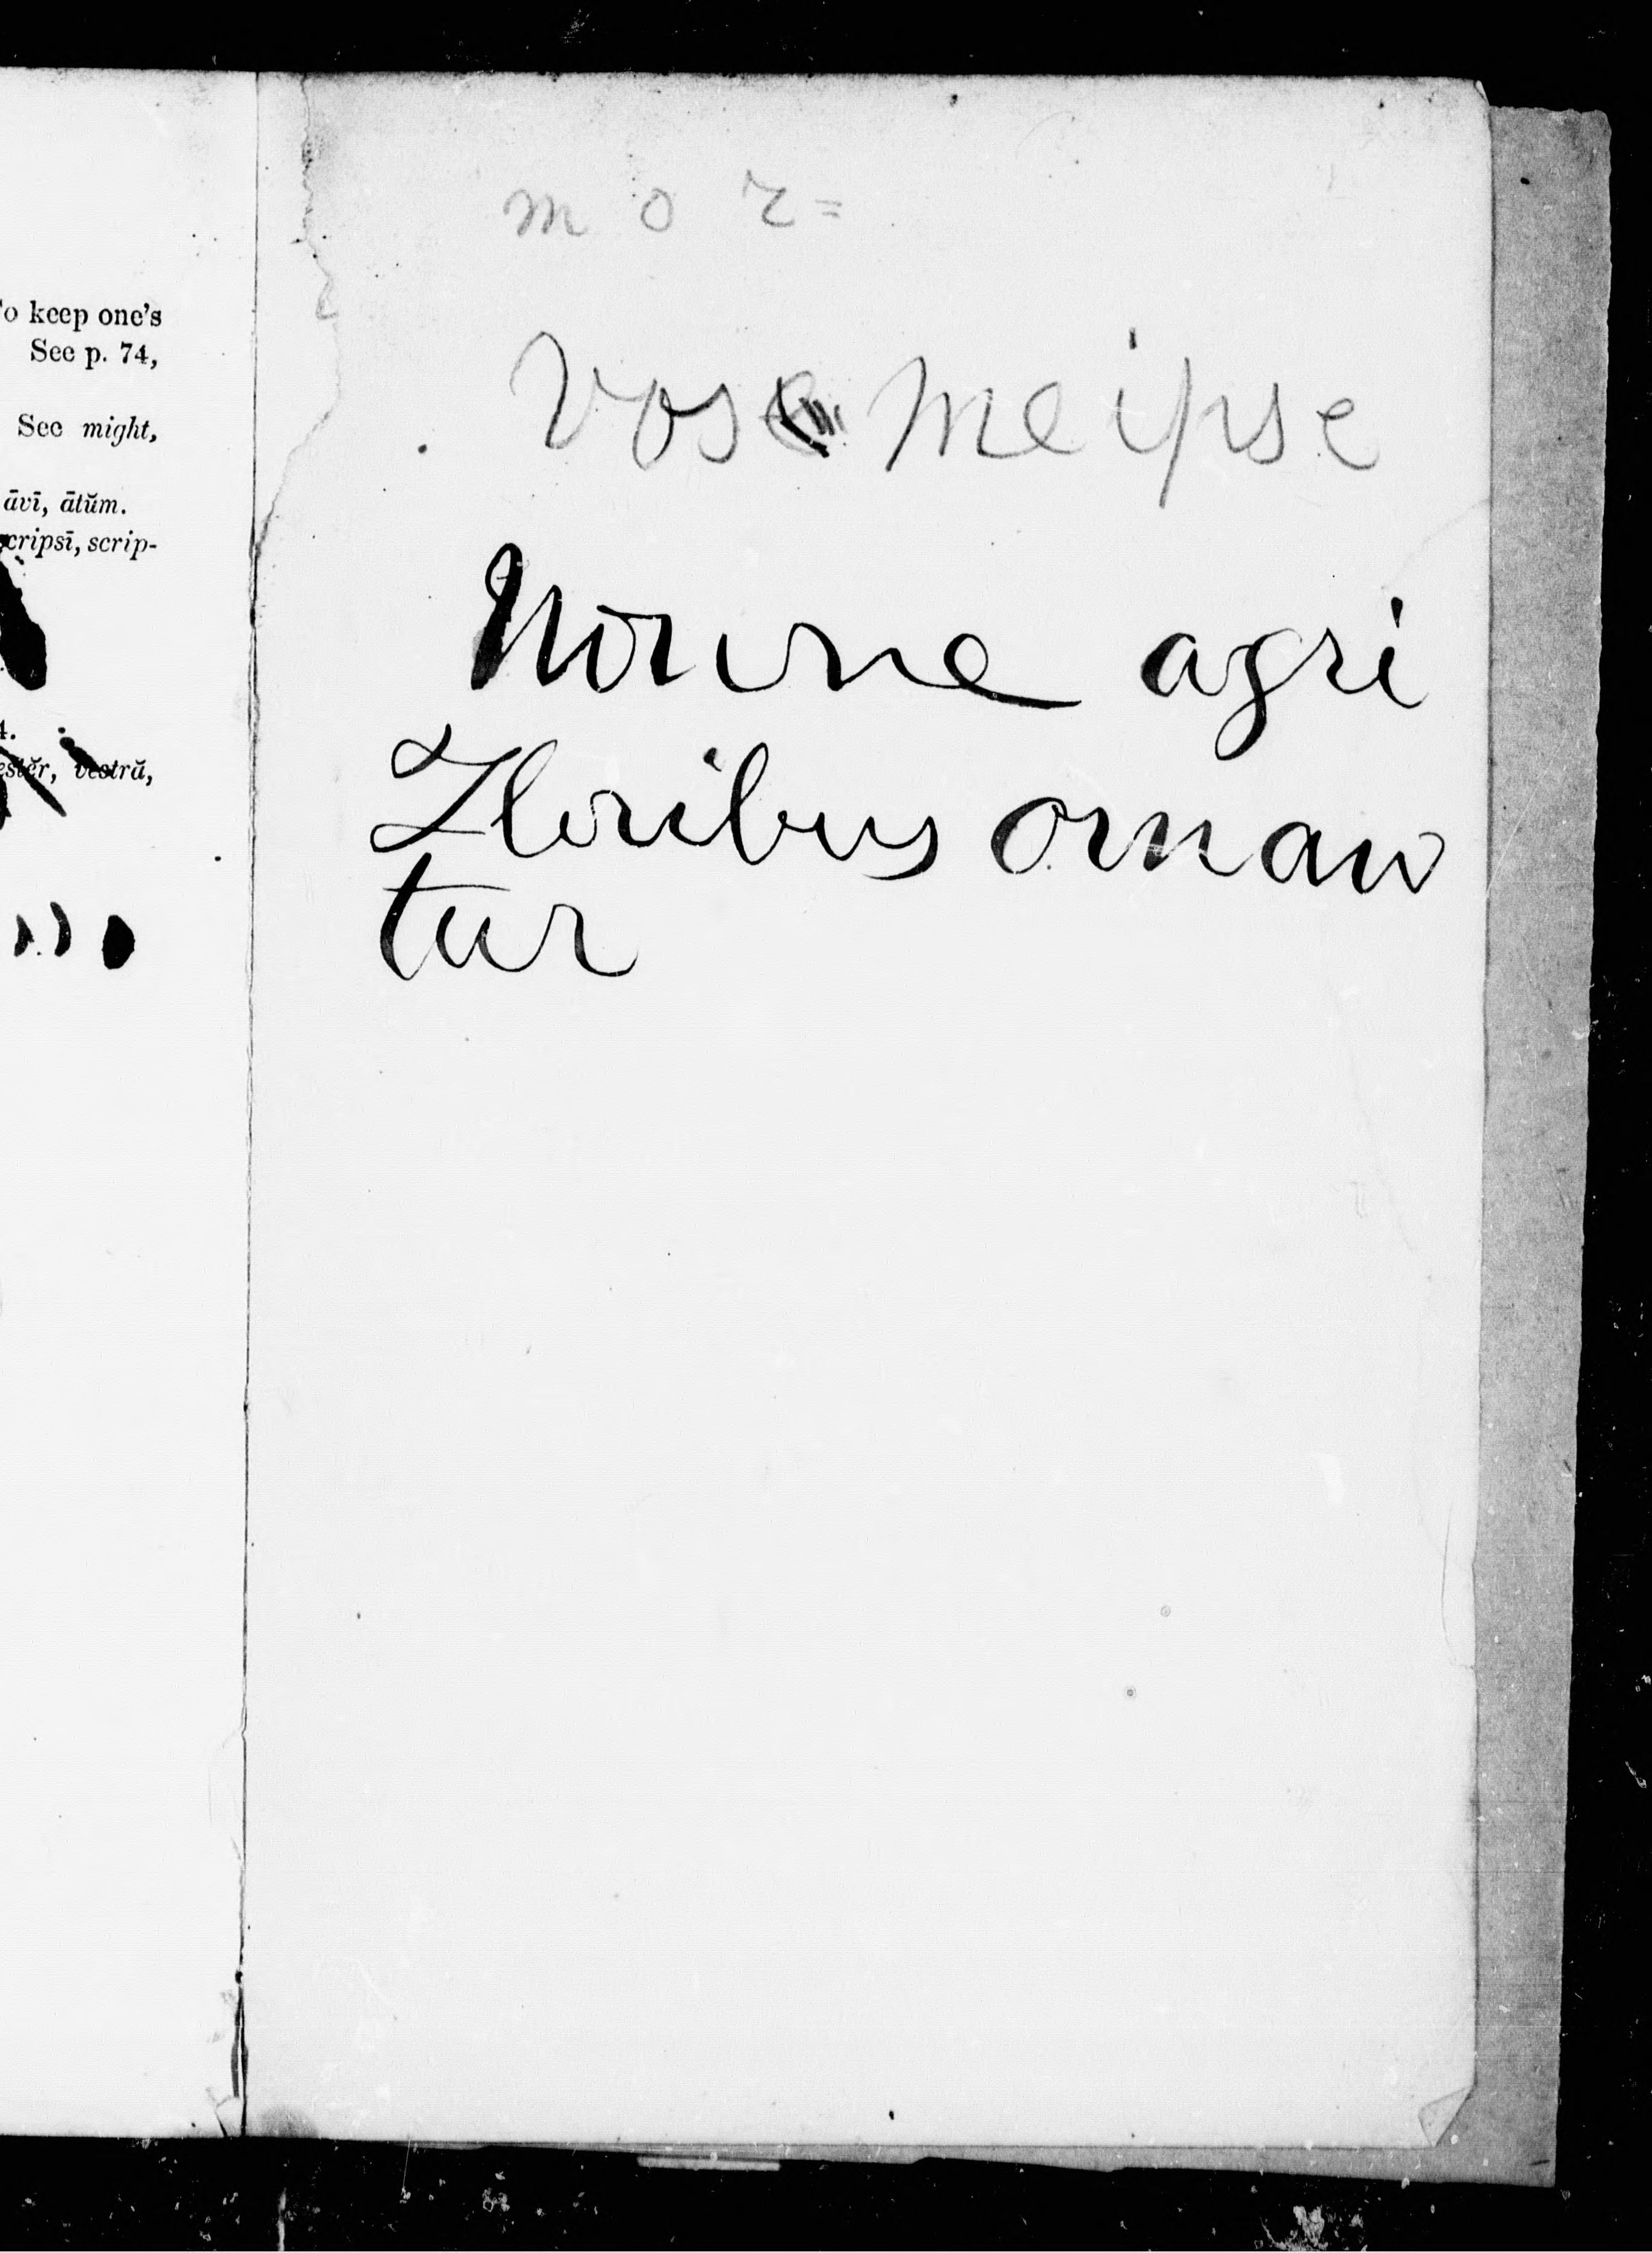 To keep one's
See p. 74,
See might,
āvī, ātŭm.
scripsī, scrip-
4.
estĕr, vestră,
m o r =
Vos meipse
Nonne agri
Floribus ornan
tur